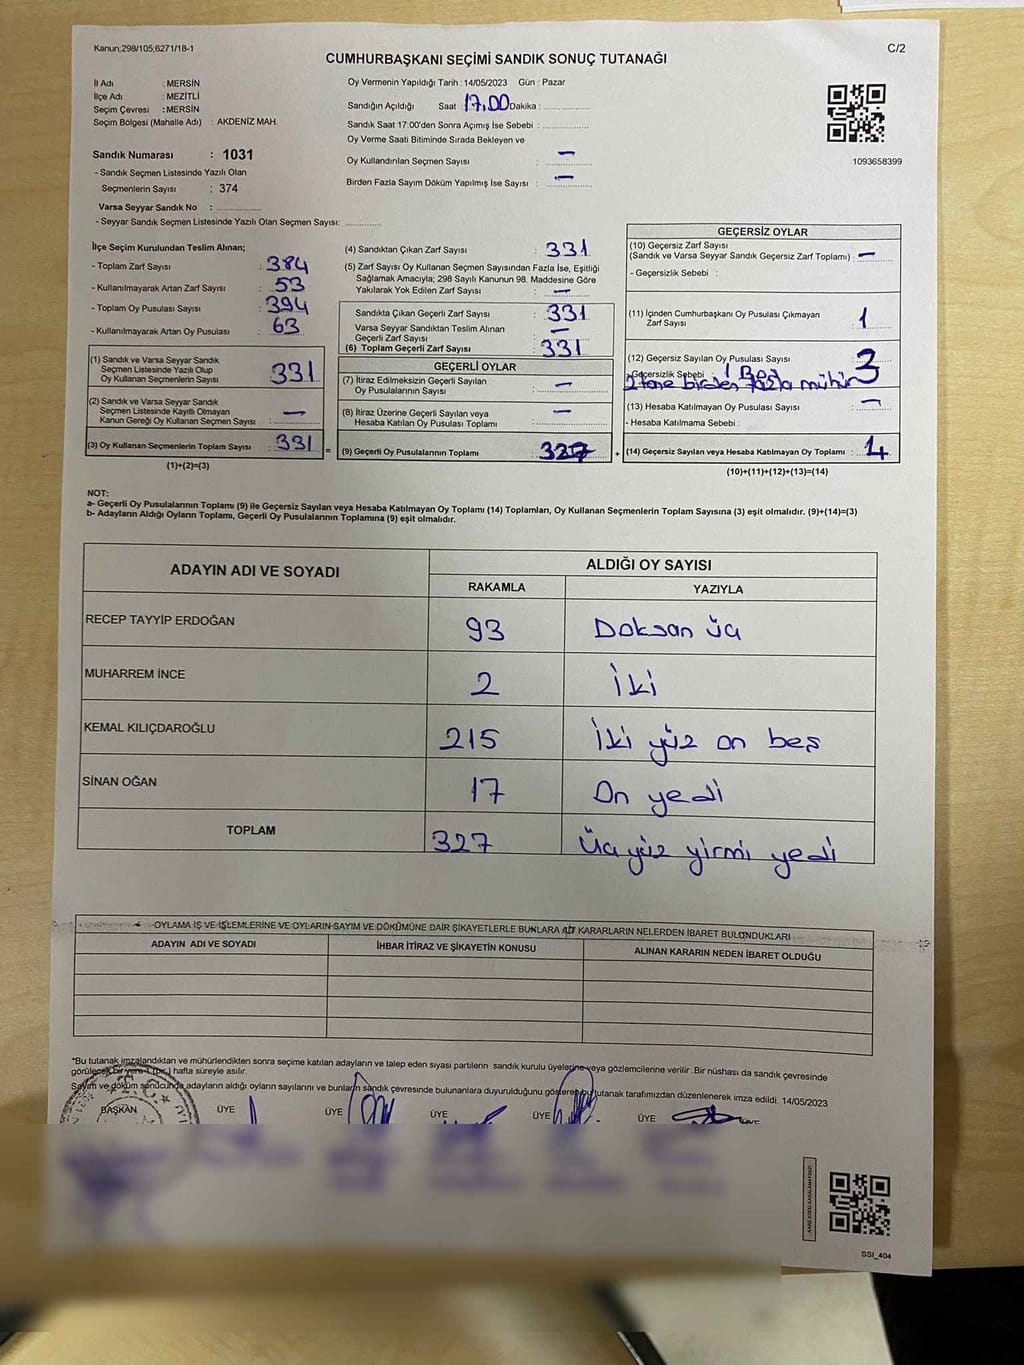 Kanun;298/105;6271/18-1
C/2
CUMHURBAŞKANI SEÇİMİ SANDIK SONUÇ TUTANAĞI
İl Adı : MERSİN
İlçe Adı : MEZİTLİ
Seçim Çevresi : MERSİN
Seçim Bölgesi (Mahalle Adı) : AKDENİZ MAH.
Sandık Numarası : 1031
- Sandık Seçmen Listesinde Yazılı Olan
Seçmenlerin Sayısı : 374
Varsa Seyyar Sandık No :
- Seyyar Sandık Seçmen Listesinde Yazılı Olan Seçmen Sayısı:
Oy Vermenin Yapıldığı Tarih : 14/05/2023 Gün : Pazar
Sandığın Açıldığı Saat 17.00 Dakika :
Sandık Saat 17:00'den Sonra Açımış İse Sebebi :
Oy Verme Saati Bitiminde Sırada Bekleyen ve
Oy Kullandırılan Seçmen Sayısı : —
Birden Fazla Sayım Döküm Yapılmış İse Sayısı : —
1093658399
İlçe Seçim Kurulundan Teslim Alınan;
- Toplam Zarf Sayısı : 384
- Kullanılmayarak Artan Zarf Sayısı : 53
- Toplam Oy Pusulası Sayısı : 394
- Kullanılmayarak Artan Oy Pusulası : 63
(1) Sandık ve Varsa Seyyar Sandık
Seçmen Listesinde Yazılı Olup
Oy Kullanan Seçmenlerin Sayısı : 331
(2) Sandık ve Varsa Seyyar Sandık
Seçmen Listesinde Kayıtlı Olmayan
Kanun Gereği Oy Kullanan Seçmen Sayısı : —
(3) Oy Kullanan Seçmenlerin Toplam Sayısı : 331
(1)+(2)=(3)
(4) Sandıktan Çıkan Zarf Sayısı : 331
(5) Zarf Sayısı Oy Kullanan Seçmen Sayısından Fazla İse, Eşitliği
Sağlamak Amacıyla; 298 Sayılı Kanunun 98. Maddesine Göre
Yakılarak Yok Edilen Zarf Sayısı : —
Sandıkta Çıkan Geçerli Zarf Sayısı : 331
Varsa Seyyar Sandıktan Teslim Alınan
Geçerli Zarf Sayısı : —
(6) Toplam Geçerli Zarf Sayısı : 331
GEÇERLİ OYLAR
(7) İtiraz Edilmeksizin Geçerli Sayılan
Oy Pusulalarının Sayısı : —
(8) İtiraz Üzerine Geçerli Sayılan veya
Hesaba Katılan Oy Pusulası Toplamı : —
= (9) Geçerli Oy Pusulalarının Toplamı : 327
GEÇERSİZ OYLAR
(10) Geçersiz Zarf Sayısı
(Sandık ve Varsa Seyyar Sandık Geçersiz Zarf Toplamı) : —
- Geçersizlik Sebebi :
(11) İçinden Cumhurbaşkanı Oy Pusulası Çıkmayan
Zarf Sayısı : 1
(12) Geçersiz Sayılan Oy Pusulası Sayısı : 3
- Geçersizlik Sebebi : 1 Boş
2 tane birden fazla mühür
(13) Hesaba Katılmayan Oy Pusulası Sayısı : —
- Hesaba Katılmama Sebebi :
+ (14) Geçersiz Sayılan veya Hesaba Katılmayan Oy Toplamı : 4
(10)+(11)+(12)+(13)=(14)
NOT:
a- Geçerli Oy Pusulalarının Toplamı (9) ile Geçersiz Sayılan veya Hesaba Katılmayan Oy Toplamı (14) Toplamları, Oy Kullanan Seçmenlerin Toplam Sayısına (3) eşit olmalıdır. (9)+(14)=(3)
b- Adayların Aldığı Oyların Toplamı, Geçerli Oy Pusulalarının Toplamına (9) eşit olmalıdır.
ADAYIN ADI VE SOYADI ALDIĞI OY SAYISI
RAKAMLA YAZIYLA
RECEP TAYYİP ERDOĞAN 93 Doksan üç
MUHARREM İNCE 2 İki
KEMAL KILIÇDAROĞLU 215 İki yüz on beş
SİNAN OĞAN 17 On yedi
TOPLAM 327 Üç yüz yirmi yedi
OYLAMA İŞ VE İŞLEMLERİNE VE OYLARIN SAYIM VE DÖKÜMÜNE DAİR ŞİKAYETLERLE BUNLARA AİT KARARLARIN NELERDEN İBARET BULUNDUKLARI
ADAYIN ADI VE SOYADI İHBAR İTİRAZ VE ŞİKAYETİN KONUSU ALINAN KARARIN NEDEN İBARET OLDUĞU
*Bu tutanak imzalandıktan ve mühürlendikten sonra seçime katılan adayların ve talep eden siyasi partilerin sandık kurulu üyelerine veya gözlemcilerine verilir .Bir nüshası da sandık çevresinde
görülecek bir yere 1 (bir) hafta süreyle asılır.
Sayım ve döküm sonucunda adayların aldığı oyların sayılarını ve bunların sandık çevresinde bulunanlara duyurulduğunu gösteren bu tutanak tarafımızdan düzenlenerek imza edildi. 14/05/2023
BAŞKAN ÜYE ÜYE ÜYE ÜYE ÜYE ÜYE
SSI_404